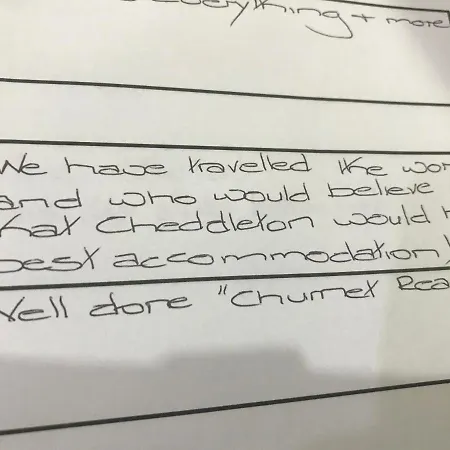 everything + more
We have travelled the wor
and who would believe
that Cheddleton would h
best accommodation!
Well done "Churnet Rea